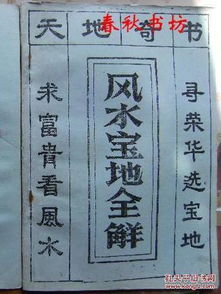 春秋书坊
天地奇书
寻荣华选宝地
风水宝地全觧
求富貴看風水